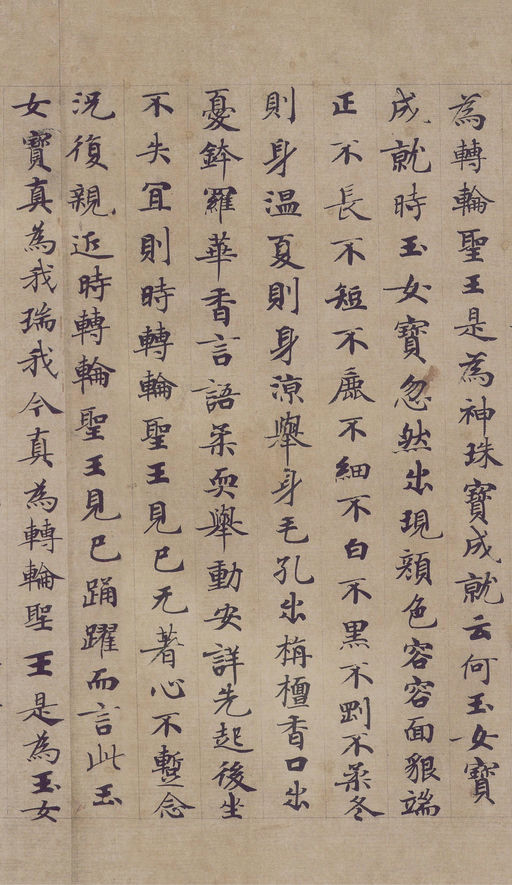 為轉輪聖王是為神珠寶成就云何玉女寶
成就時玉女寶忽然出現顔色容容面貇端
正不長不短不麁不細不白不黒不剛不柔冬
則身温夏則身涼舉身毛孔出栴檀香口出
憂鉢羅華香言語柔耎舉動安詳先起後坐
不失冝則時轉輪聖王見已无著心不蹔念
況復親近時轉輪聖王見已踊躍而言此玉
女寶真為我瑞我今真為轉輪聖王是為玉女